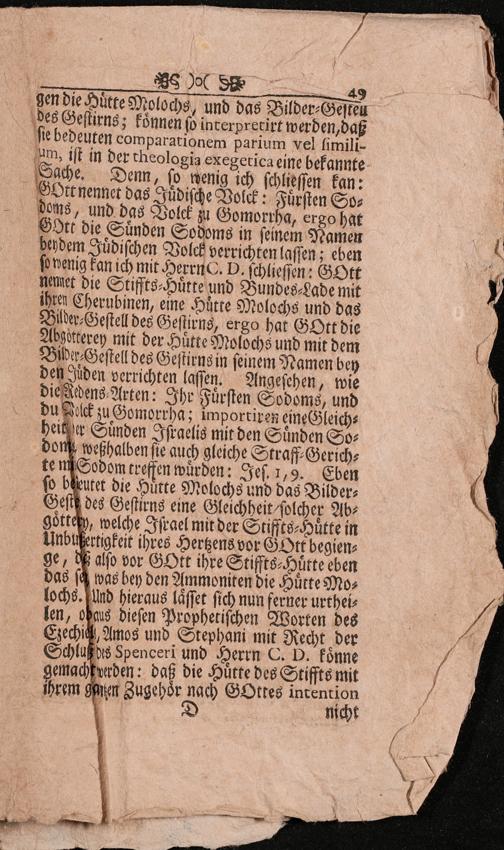 )o(
49
gen die Hütte Molochs, und das Bilder-Gestell
des Gestirns; können so interpretirt werden, daß
sie bedeuten comparationem parium vel simili-
um, ist in der theologia exegetica eine bekannte
Sache. Denn, so wenig ich schliessen kan:
GOtt nennet das Jüdische Volck: Fürsten So-
doms, und das Volck zu Gomorrha, ergo hat
GOtt die Sünden Sodoms in seinem Namen
bey dem Jüdischen Volck verrichten lassen; eben
so wenig kan ich mit Herrn C. D. schliessen: GOtt
nennet die Stiffts-Hütte und Bundes-Lade mit
ihren Cherubinen, eine Hütte Molochs und das
Bilder-Gestell des Gestirns, ergo hat GOtt die
Abgötterey mit der Hütte Molochs und mit dem
Bilder-Gestell des Gestirns in seinem Namen bey
den Jüden verrichten lassen. Angesehen, wie
die Redens-Arten: Ihr Fürsten Sodoms, und
du Volck zu Gomorrha; importiren eine Gleich-
heit der Sünden Israelis mit den Sünden So-
doms, weßhalben sie auch gleiche Straff-Gerich-
te mit Sodom treffen würden: Jes. 1, 9. Eben
so bedeutet die Hütte Molochs und das Bilder-
Gestell des Gestirns eine Gleichheit solcher Ab-
götterey, welche Israel mit der Stiffts-Hütte in
Unbußfertigkeit ihres Hertzens vor GOtt begien-
ge, daß also vor GOtt ihre Stiffts-Hütte eben
das sey, was bey den Ammoniten die Hütte Mo-
lochs. Und hieraus lässet sich nun ferner urthei-
len, ob aus diesen Prophetischen Worten des
Ezechiels, Amos und Stephani mit Recht der
Schluß des Spenceri und Herrn C. D. könne
gemacht werden: daß die Hütte des Stiffts mit
ihrem gantzen Zugehör nach GOttes intention
D nicht